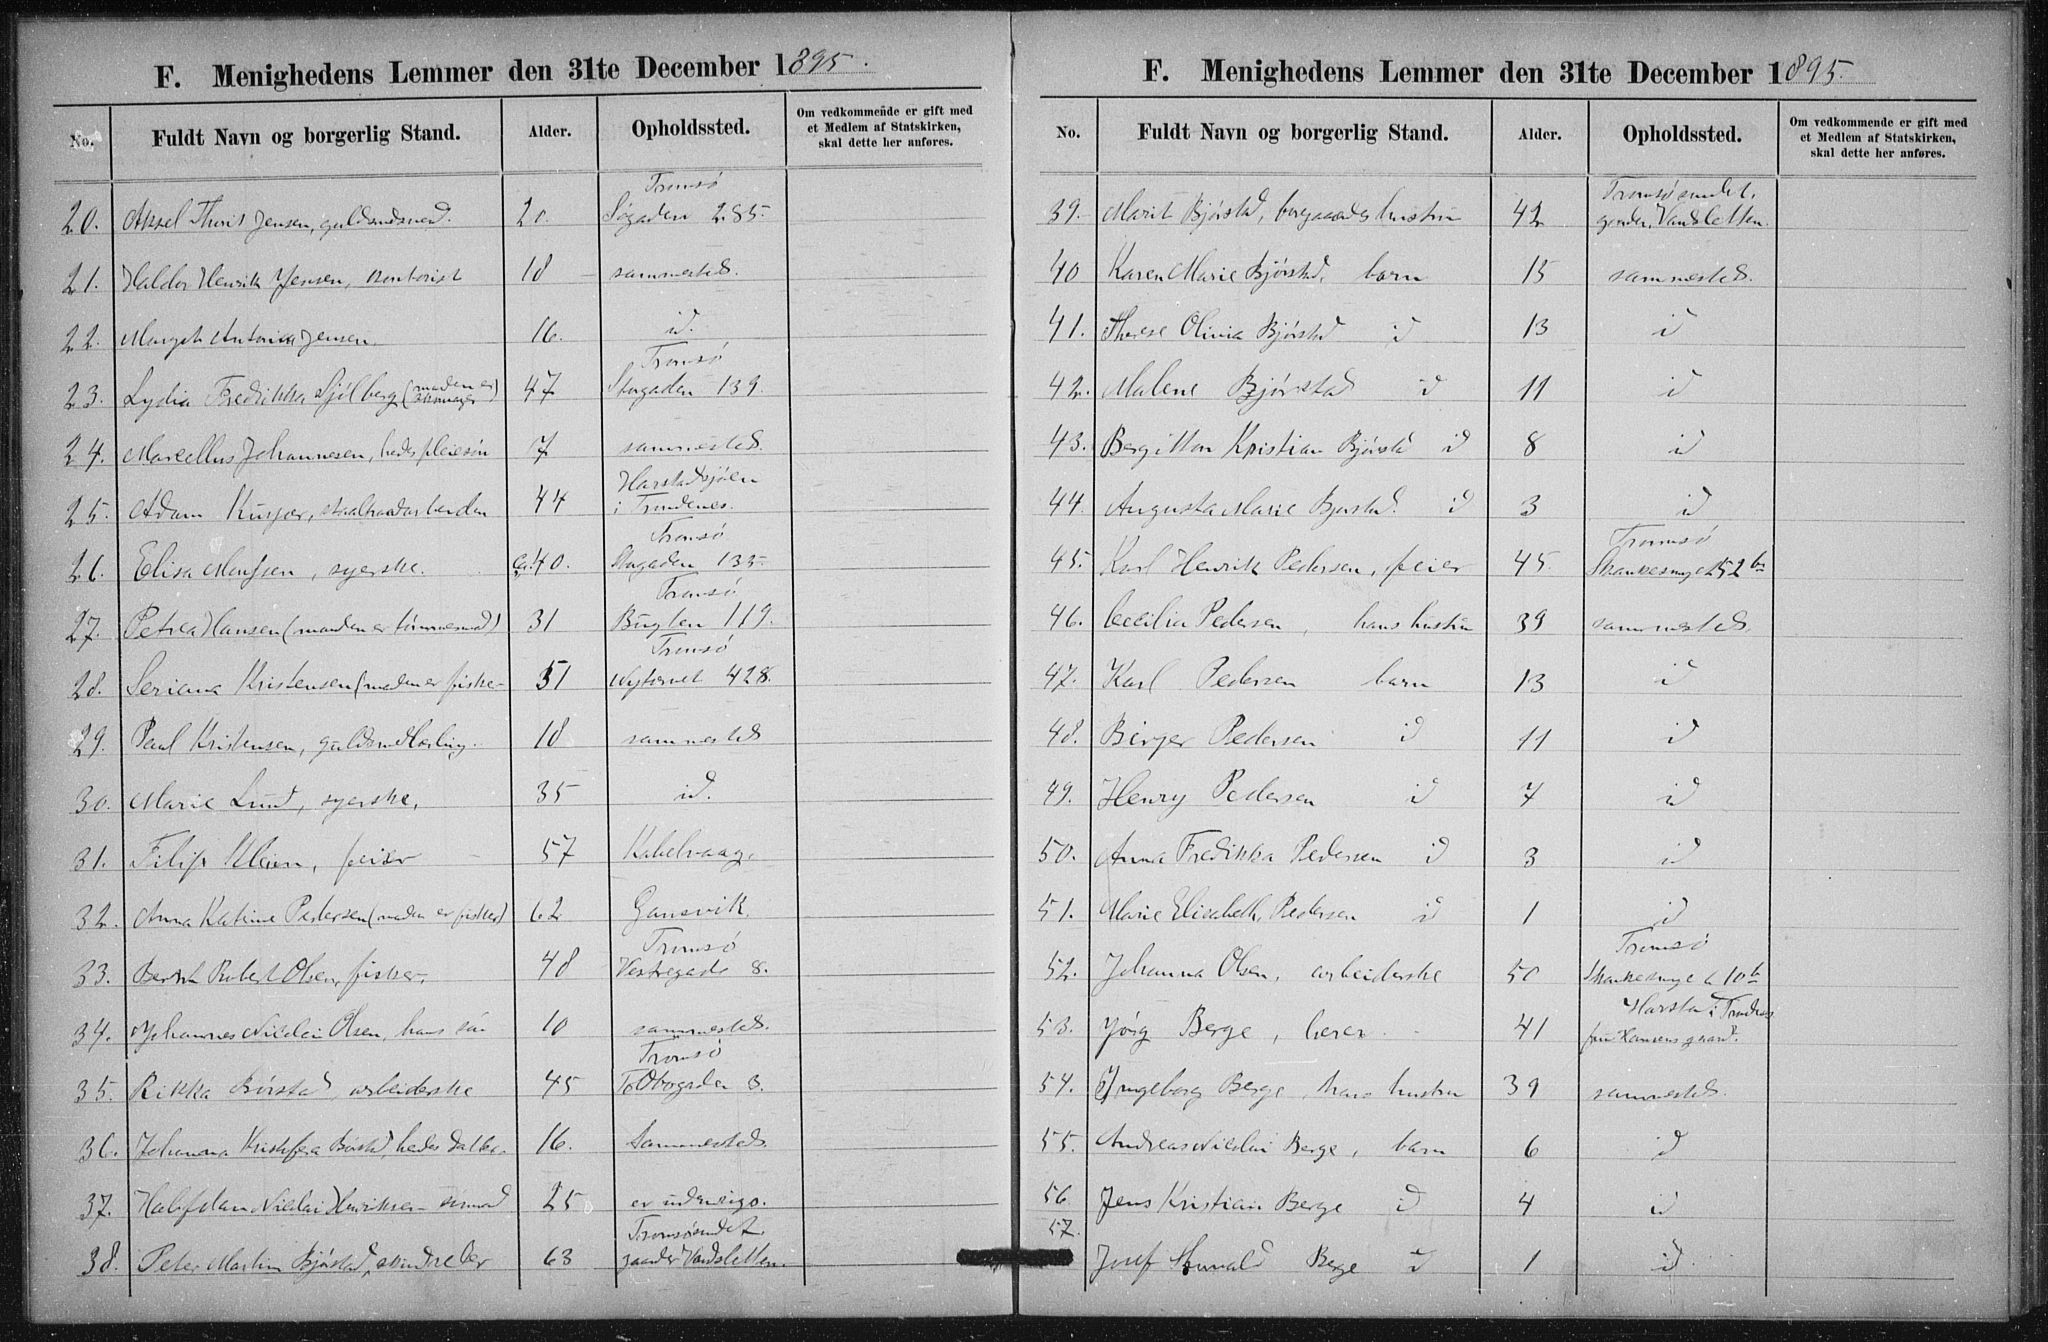 F. Menighedens Lemmer den 31te December 1895.
No. Fuldt Navn og borgerlig Stand. Alder. Opholdssted. Om vedkommende er gift med et Medlem af Statskirken, skal dette her anføres.
Tromsø
20. Aksel Thoris Jensen, guldsmed. 20. Søgaden 285.
21. Haldor Henrik Jensen, kontorist 18 sammesteds.
22. Margit Antonia Jensen. 16. id.
Tromsø
23. Lydia Fredrikka Sjølberg (manden er skomager) 47 Storgaden 139.
24. Marcellus Johannesen, hendes pleiesøn 7 sammesteds.
Harstadsjøen
25. Adam 44 i Trondenes.
Tromsø
26. Elisa syerske. ca. 40. Storgaden 135.
Tromsø
27. Petrea Hansen (manden er tømmermd) 31 Bugten 119.
Tromsø
28. Seriana Kristensen (manden er fisker 51 Nytorvet 428.
29. Paul Kristensen, guldsmedlærling. 18 sammesteds
30. Marie Lund, syerske. 35 id.
31. Filip Klein, feier 57 Kabelvaag.
32. Anna Katrine Pedersen (manden er fisker) 62 Gausvik.
Tromsø
33. Bernt Robert Olsen, fisker. 48 Vestregade 8.
34. Johannes Nicolai Olsen, hans søn 10 sammesteds.
Tromsø
35. Rikka Børstad, arbeiderske 45 Tolbogaden 8.
36. Johanna Kristofa Børstad, hendes datter. 16. sammesteds
37. Halfdan Nicolai Henriksen sømand 25 er udenrigs.
Tromsøsundet.
38. Peter Martin Bjørstad, 63 gaarden Vandsletten.
F. Menighedens Lemmer den 31te December 1895.
No. Fuldt Navn og borgerlig Stand. Alder. Opholdssted. Om vedkommende er gift med et Medlem af Statskirken, skal dette her anføres.
Tromsøsundet,
39. Marit Bjørstad, hustru 42 gaarden Vandsletten.
40 Karen Marie Bjørstad, barn 15 sammesteds.
41. Therese Olivia Bjørstad id 13 id
42. Malene Bjørstad id 11 id
43. Bergitton Kristian Bjørstad id 8 id
44. Augusta Marie Bjørstad. id 3 id
Tromsø
45. Karl Henrik Pedersen, feier 45. Skankesmyr 252 b
46. Cecilia Pedersen, hans hustru 39 sammesteds.
47. Karl Pedersen barn 13 id
48. Birger Pedersen id 11 id
49. Henry Pedersen id 7 id
50. Anna Fredikka Pedersen id 3 id
51. Marie Elisabeth Pedersen id 1 id
Tromsø
52. Johanna Olsen, arbeiderske 50 Skankesmyr 10 b
Harstad i Trondenes
53. Jörg Berge, lærer 41 fru Hansens gaard.
54. Ingeborg Berge, hans hustru 39 sammesteds.
55. Andreas Nicolai Berge, barn 6 id
56 Jens Kristian Berge id 4 id
57. Josef Berge id 1 id.